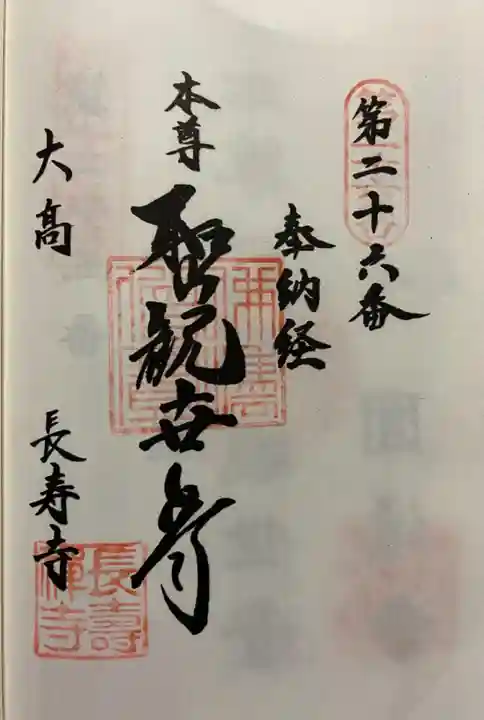 第二十六番
奉納経
本尊
聖観世音
大高
長寿寺
長壽
禅寺